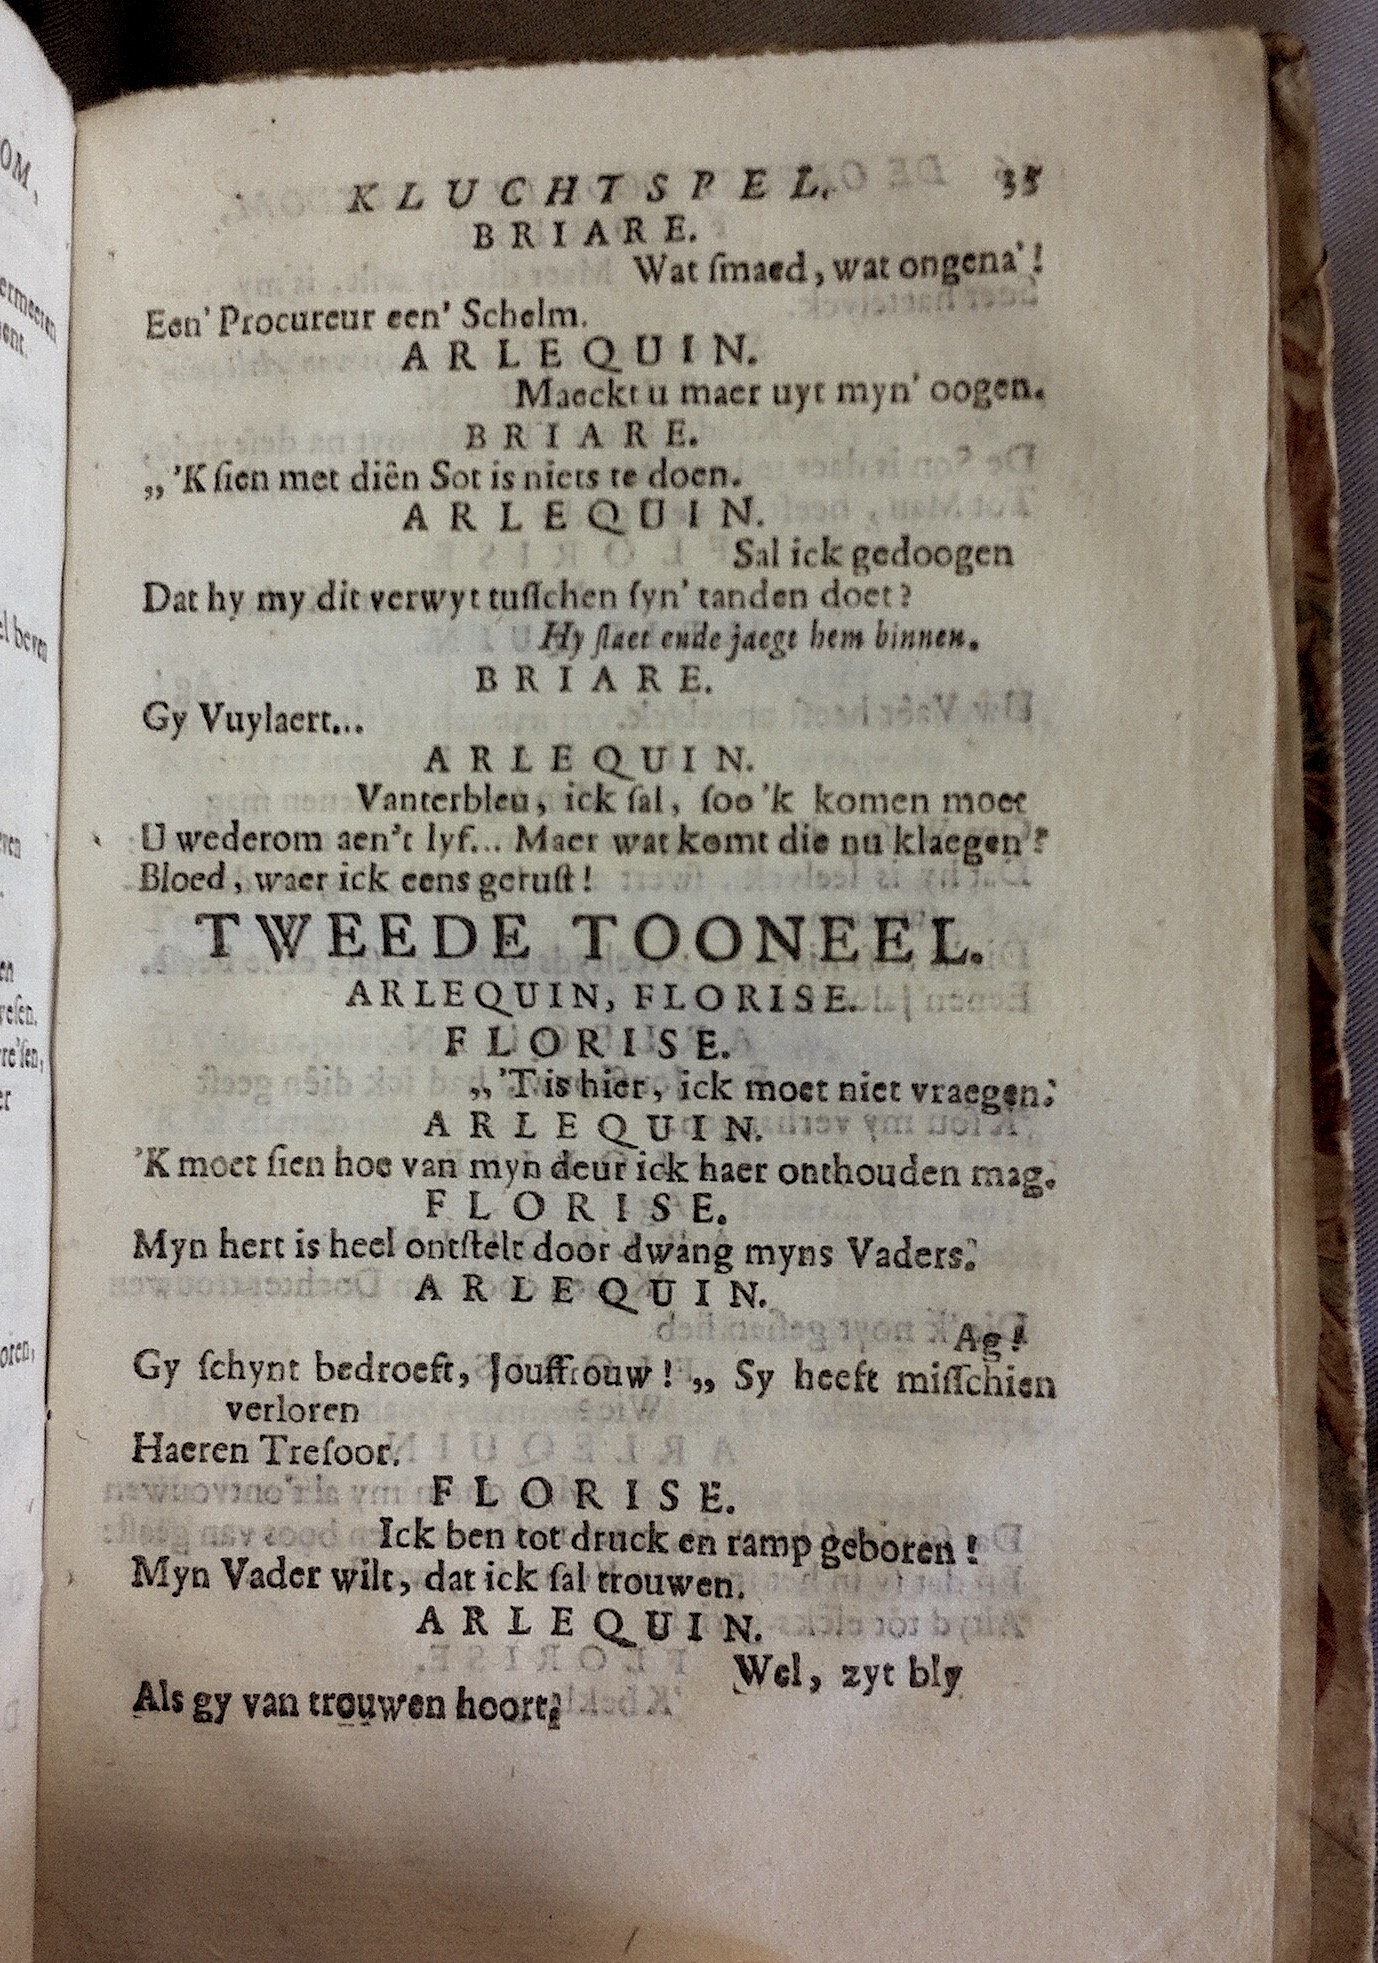 KLUCHTSPEL. 35
BRIARE.
Wat ſmaed, wat ongena'!
Een' Procureur een' Schelm.
ARLEQUIN.
Maeckt u maer uyt myn' oogen.
BRIARE.
„'K ſien met diên Sot is niets te doen.
ARLEQUIN.
Sal ick gedoogen
Dat hy my dit verwyt tuſſchen ſyn' tanden doet?
Hy ſlaet ende jaegt hem binnen.
BRIARE.
Gy Vuylaert...
ARLEQUIN.
Vanterbleu, ick ſal, ſoo 'k komen moet
U wederom aen't lyf... Maer wat komt die nu klaegen?
Bloed, waer ick eens geruſt!
TWEEDE TOONEEL.
ARLEQUIN, FLORISE.
FLORISE.
„'T is hier, ick moet niet vraegen.
ARLEQUIN.
'K moet ſien hoe van myn deur ick haer onthouden mag.
FLORISE.
Myn hert is heel ontſtelt door dwang myns Vaders.
ARLEQUIN.
Ag!
Gy ſchynt bedroeft, Jouffrouw! „ Sy heeft miſſchien
verloren
Haeren Treſoor.
FLORISE.
Ick ben tot druck en ramp geboren!
Myn Vader wilt, dat ick ſal trouwen.
ARLEQUIN.
Wel, zyt bly
Als gy van trouwen hoort.